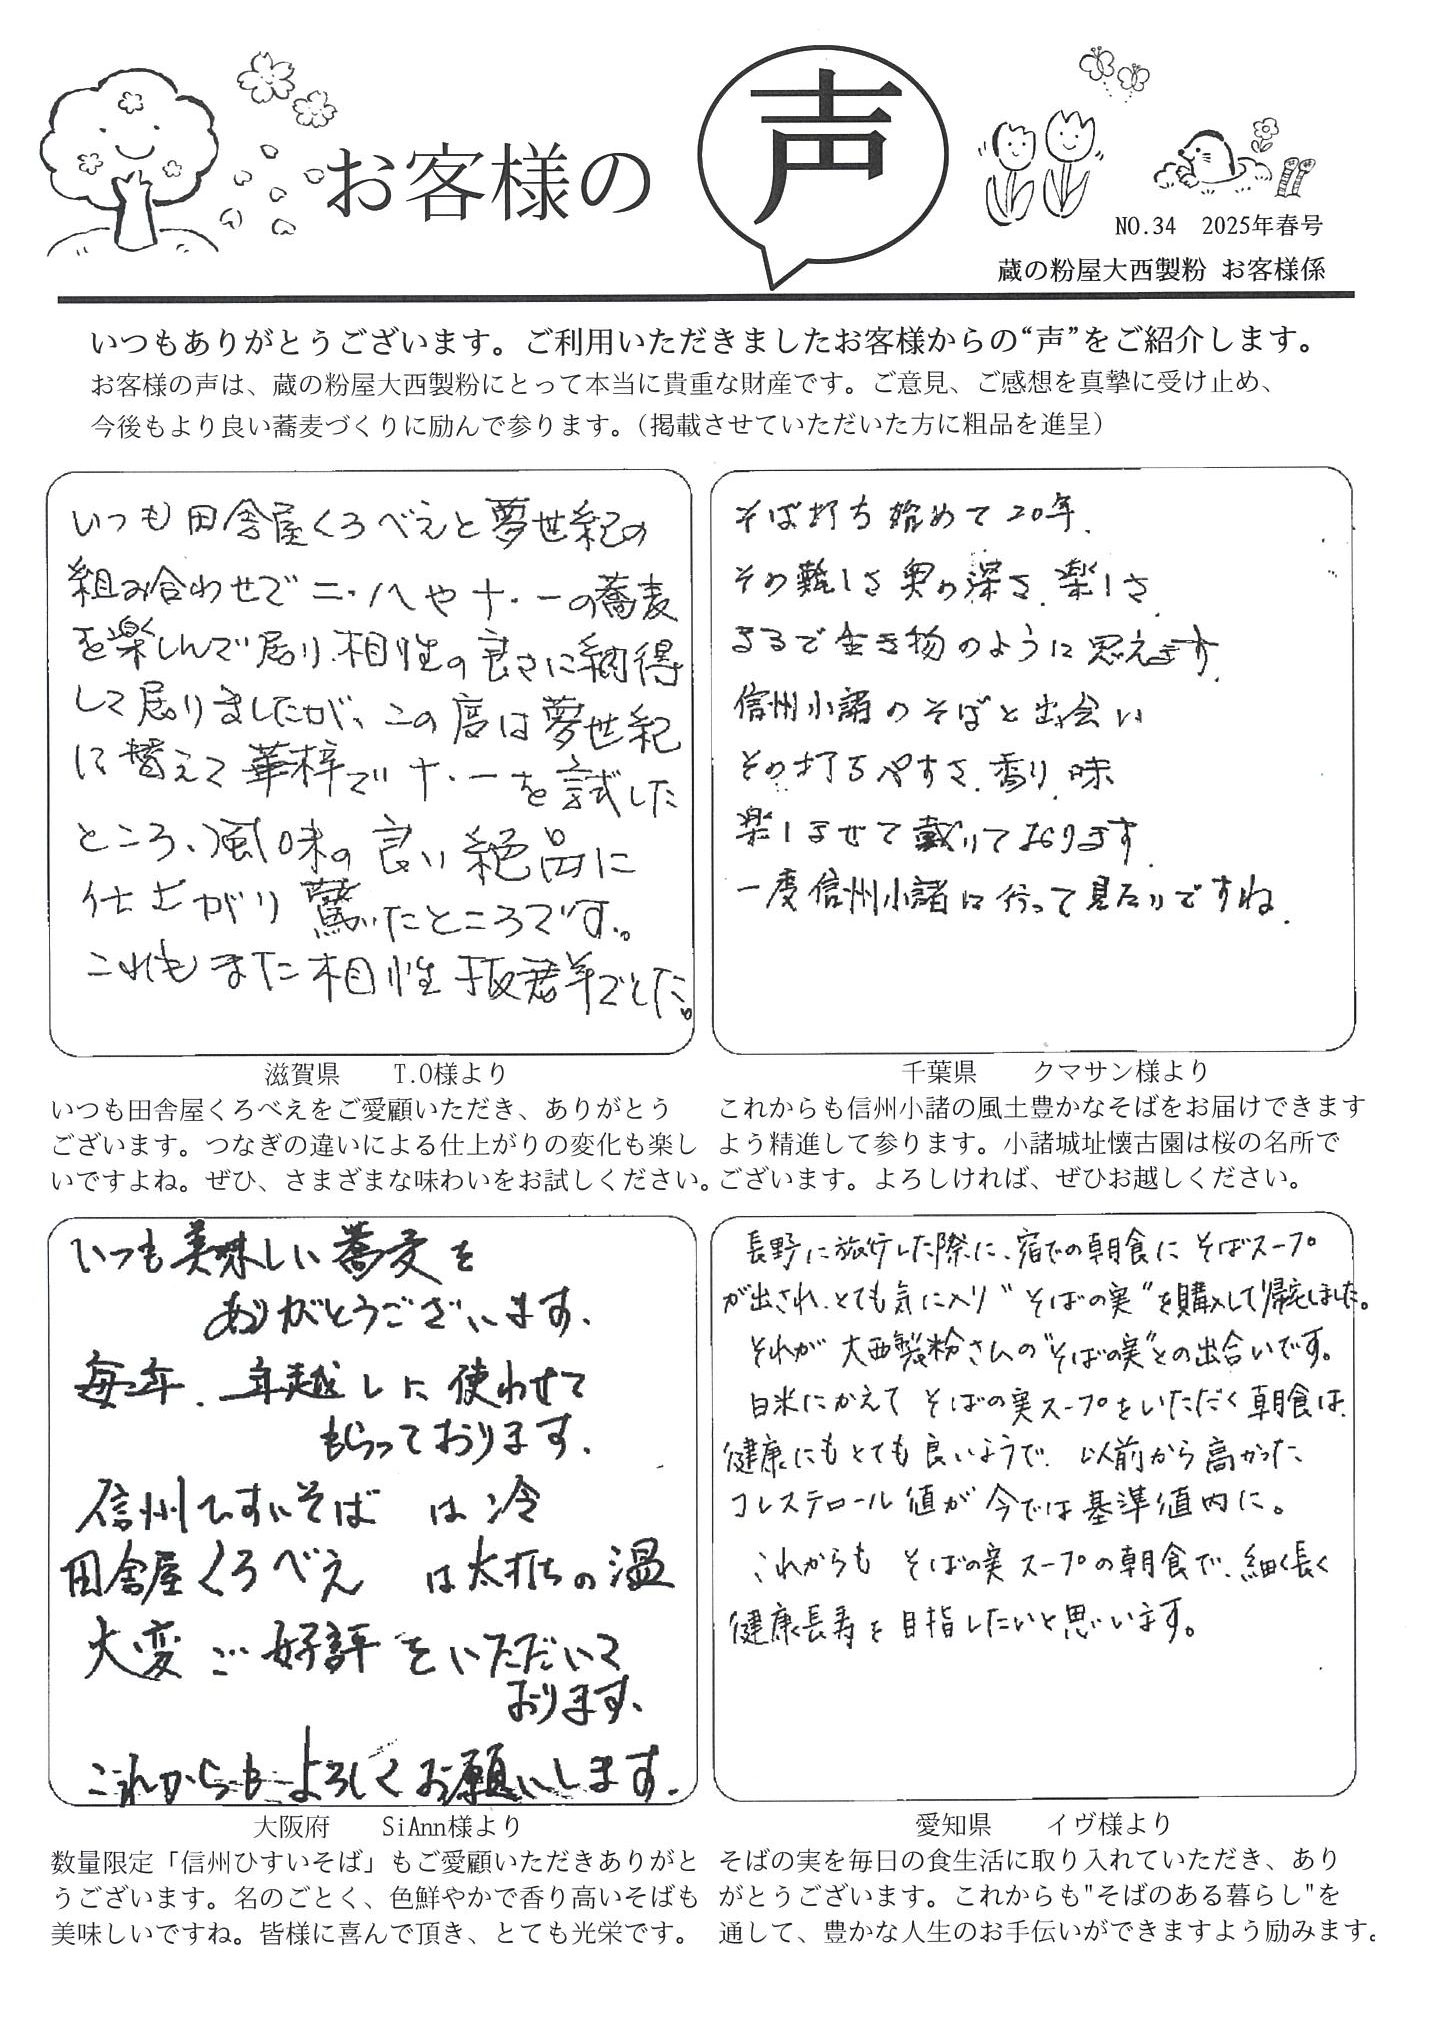 お客様の
声
NO.34 2025年春号
蔵の粉屋大西製粉 お客様係
いつもありがとうございます。ご利用いただきましたお客様からの“声”をご紹介します。
お客様の声は、蔵の粉屋大西製粉にとって本当に貴重な財産です。ご意見、ご感想を真摯に受け止め、
今後もより良い蕎麦づくりに励んで参ります。（掲載させていただいた方に粗品を進呈）
いつも田舎屋くろべえと夢世紀の
組み合わせで二・八や十・一の蕎麦
を楽しんで居り、相性の良さに納得
して居りましたが、この度は夢世紀
に替えて華梓で十・一を試した
ところ、風味の良い絶品に
仕上がり驚いたところです。
これもまた相性抜群でした。
滋賀県 T.O様より
いつも田舎屋くろべえをご愛顧いただき、ありがとう
ございます。つなぎの違いによる仕上がりの変化も楽し
いですよね。ぜひ、さまざまな味わいをお試しください。
そば打ち始めて20年、
その難しさ奥の深さ、楽しさ、
まるで生き物のように思えます。
信州小諸のそばと出会い
その打ちやすさ、香り、味
楽しませて戴いております。
一度信州小諸に行って見たいですね。
千葉県 クマサン様より
これからも信州小諸の風土豊かなそばをお届けできます
よう精進して参ります。小諸城址懐古園は桜の名所で
ございます。よろしければ、ぜひお越しください。
いつも美味しい蕎麦を
ありがとうございます、
毎年、年越しに使わせて
もらっております、
信州ひすいそば は冷
田舎屋くろべえ は太打ちの温
大変ご好評をいただいて
おります、
これからもよろしくお願いします、
大阪府 SiAnn様より
数量限定「信州ひすいそば」もご愛顧いただきありがと
うございます。名のごとく、色鮮やかで香り高いそばも
美味しいですね。皆様に喜んで頂き、とても光栄です。
長野に旅行した際に、宿での朝食にそばスープ
が出され、とても気に入り“そばの実”を購入して帰宅しました。
それが大西製粉さんの“そばの実”との出合いです。
白米にかえてそばの実スープをいただく朝食は、
健康にもとても良いようで、以前から高かった、
コレステロール値が今では基準値内に。
これからもそばの実スープの朝食で、細く長く
健康長寿を目指したいと思います。
愛知県 イヴ様より
そばの実を毎日の食生活に取り入れていただき、あり
がとうございます。これからも"そばのある暮らし"を
通して、豊かな人生のお手伝いができますよう励みます。